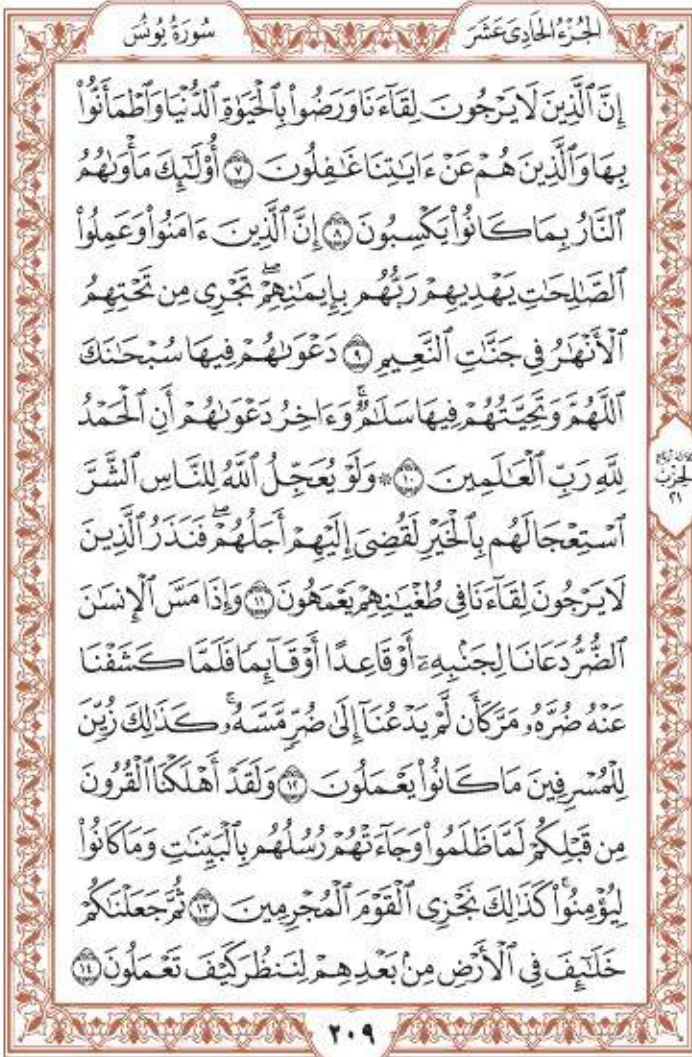 الجُزْءُ الحَادِىَ عَشَرَ
سُورَةُ يُونُسَ
إِنَّ ٱلَّذِينَ لَا يَرْجُونَ لِقَآءَنَا وَرَضُوا۟ بِٱلْحَيَوٰةِ ٱلدُّنْيَا وَٱطْمَأَنُّوا۟
بِهَا وَٱلَّذِينَ هُمْ عَنْ ءَايَٰتِنَا غَٰفِلُونَ ٧ أُو۟لَٰٓئِكَ مَأْوَىٰهُمُ
ٱلنَّارُ بِمَا كَانُوا۟ يَكْسِبُونَ ٨ إِنَّ ٱلَّذِينَ ءَامَنُوا۟ وَعَمِلُوا۟
ٱلصَّٰلِحَٰتِ يَهْدِيهِمْ رَبُّهُم بِإِيمَٰنِهِمْۖ تَجْرِى مِن تَحْتِهِمُ
ٱلْأَنْهَٰرُ فِى جَنَّٰتِ ٱلنَّعِيمِ ٩ دَعْوَىٰهُمْ فِيهَا سُبْحَٰنَكَ
ٱللَّهُمَّ وَتَحِيَّتُهُمْ فِيهَا سَلَٰمٌۚ وَءَاخِرُ دَعْوَىٰهُمْ أَنِ ٱلْحَمْدُ
لِلَّهِ رَبِّ ٱلْعَٰلَمِينَ ١٠ ۞ وَلَوْ يُعَجِّلُ ٱللَّهُ لِلنَّاسِ ٱلشَّرَّ
ٱسْتِعْجَالَهُم بِٱلْخَيْرِ لَقُضِىَ إِلَيْهِمْ أَجَلُهُمْۖ فَنَذَرُ ٱلَّذِينَ
لَا يَرْجُونَ لِقَآءَنَا فِى طُغْيَٰنِهِمْ يَعْمَهُونَ ١١ وَإِذَا مَسَّ ٱلْإِنسَٰنَ
ٱلضُّرُّ دَعَانَا لِجَنۢبِهِۦٓ أَوْ قَاعِدًا أَوْ قَآئِمًا فَلَمَّا كَشَفْنَا
عَنْهُ ضُرَّهُۥ مَرَّ كَأَن لَّمْ يَدْعُنَآ إِلَىٰ ضُرٍّ مَّسَّهُۥۚ كَذَٰلِكَ زُيِّنَ
لِلْمُسْرِفِينَ مَا كَانُوا۟ يَعْمَلُونَ ١٢ وَلَقَدْ أَهْلَكْنَا ٱلْقُرُونَ
مِن قَبْلِكُمْ لَمَّا ظَلَمُوا۟ وَجَآءَتْهُمْ رُسُلُهُم بِٱلْبَيِّنَٰتِ وَمَا كَانُوا۟
لِيُؤْمِنُوا۟ۚ كَذَٰلِكَ نَجْزِى ٱلْقَوْمَ ٱلْمُجْرِمِينَ ١٣ ثُمَّ جَعَلْنَٰكُمْ
خَلَٰٓئِفَ فِى ٱلْأَرْضِ مِنۢ بَعْدِهِمْ لِنَنظُرَ كَيْفَ تَعْمَلُونَ ١٤
الحِزْب
٢١
٢٠٩